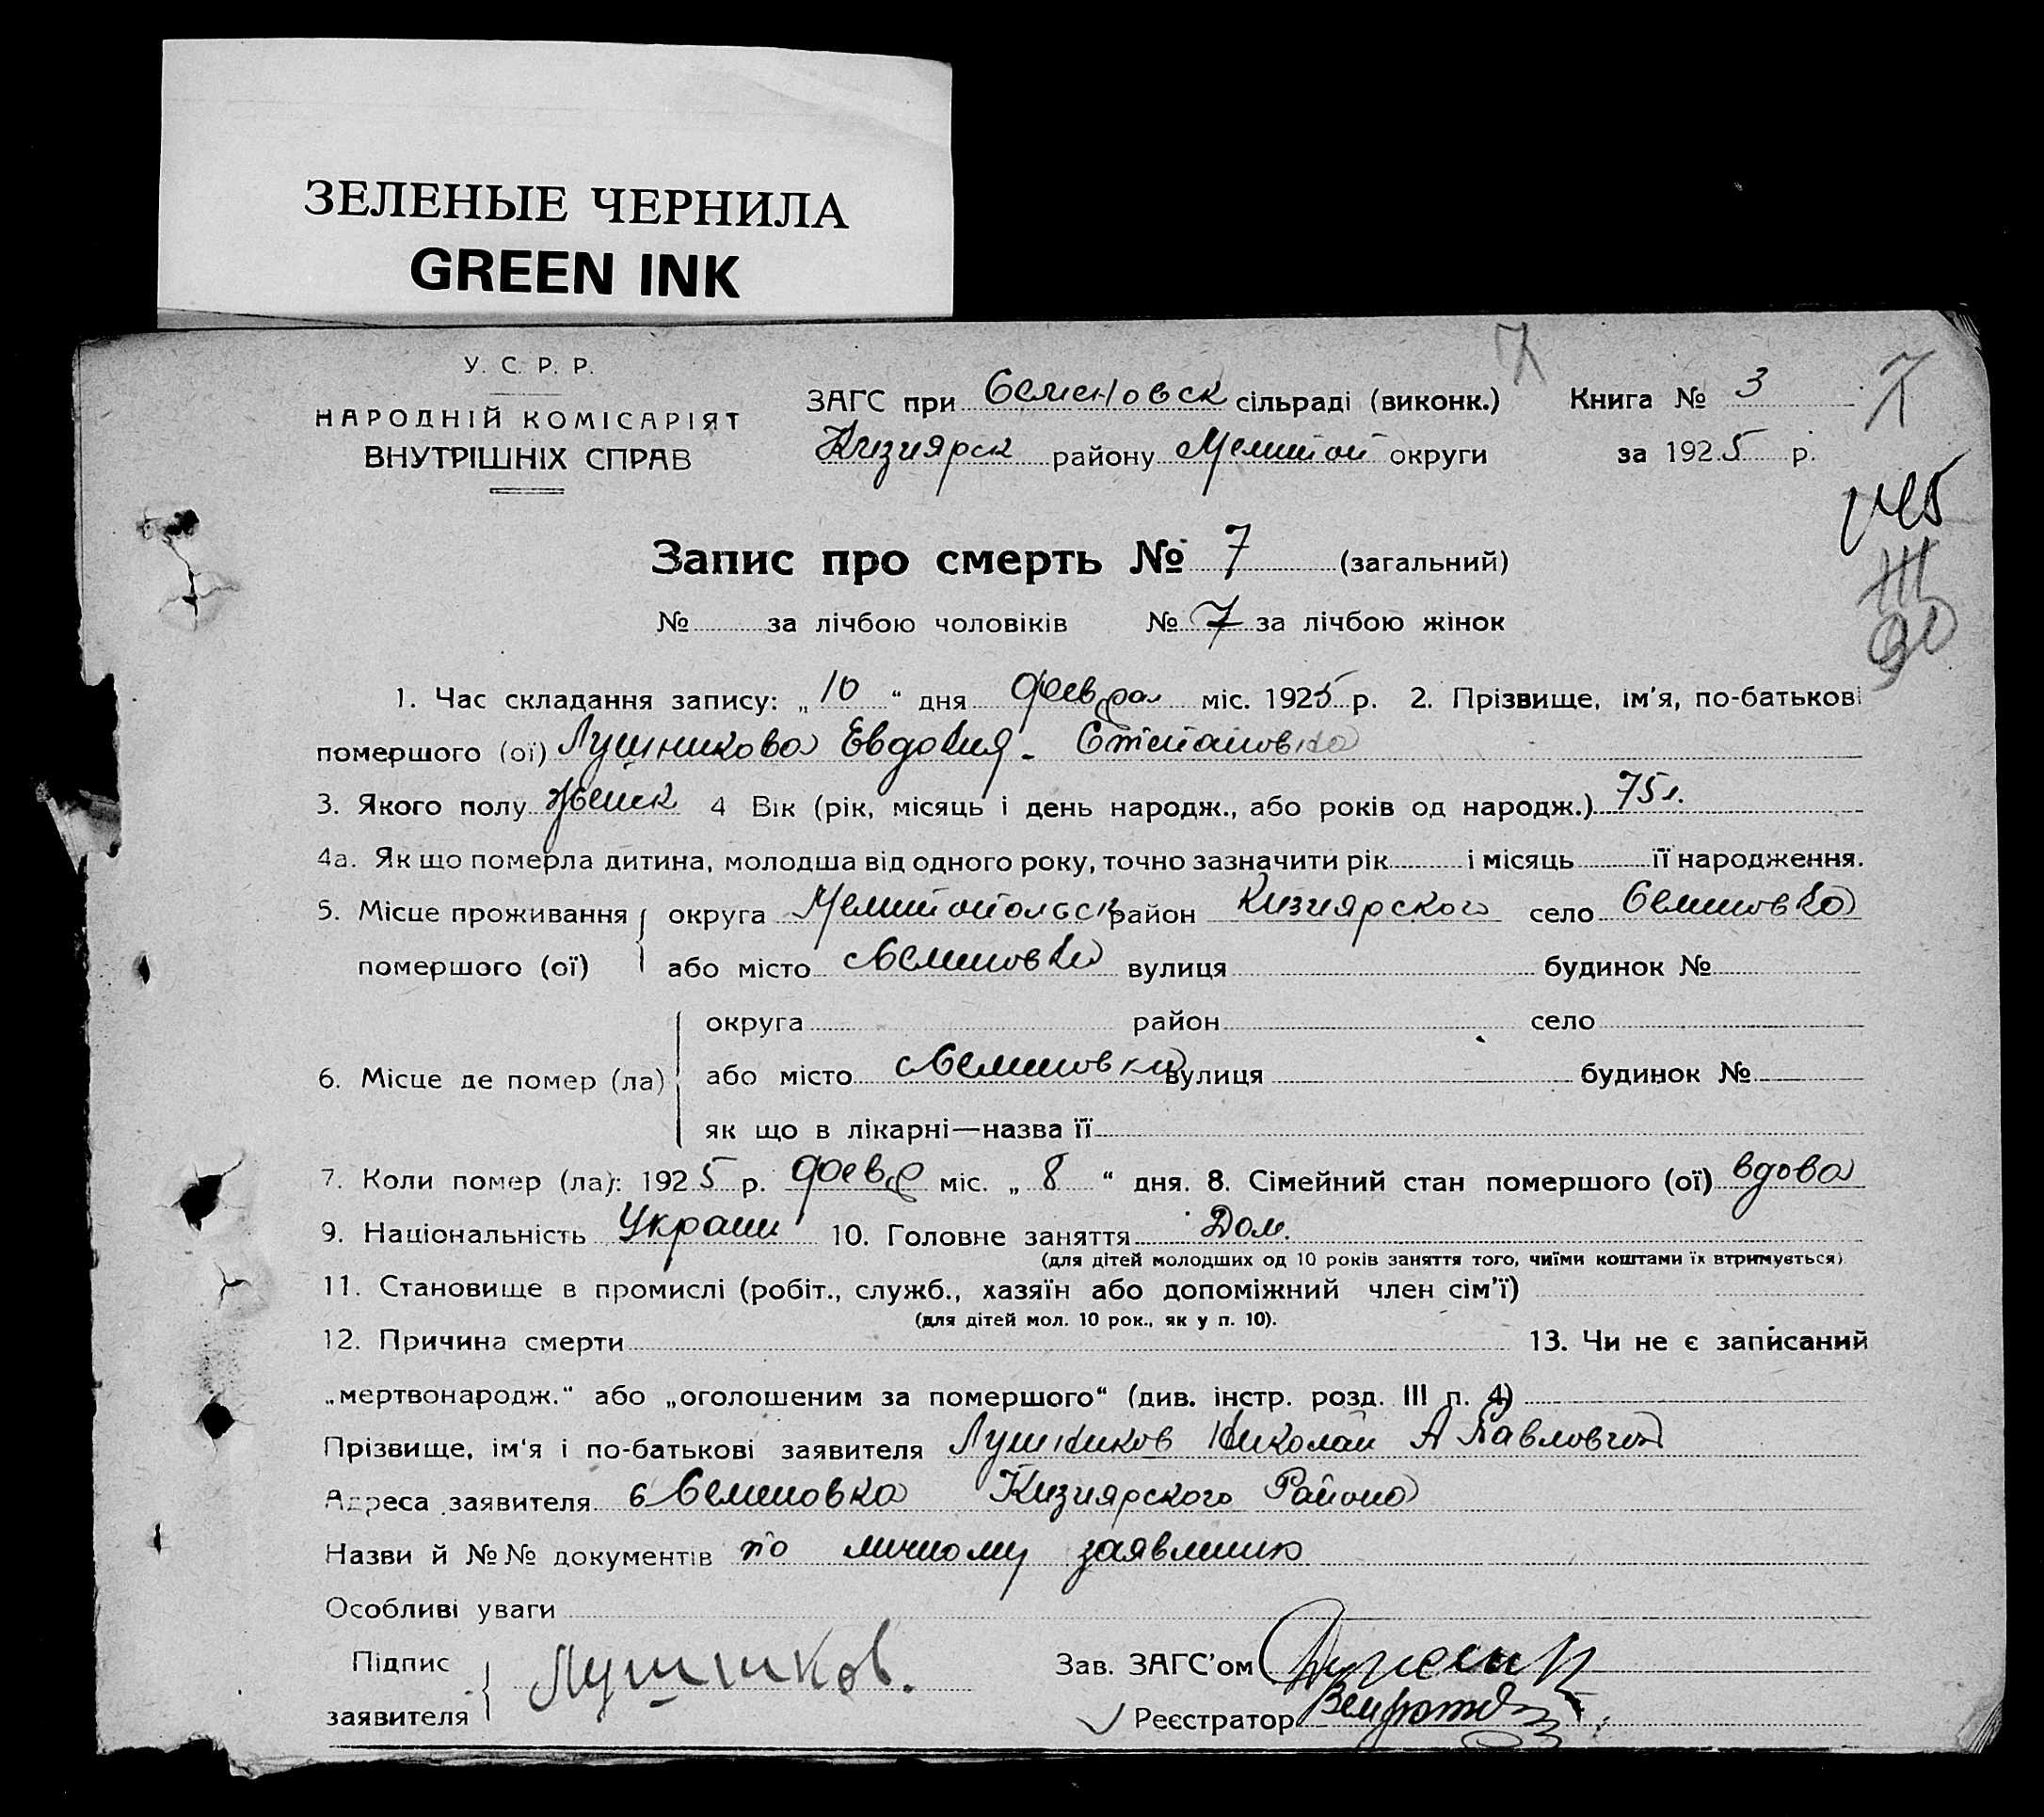 ЗЕЛЕНЫЕ ЧЕРНИЛА
GREEN INK
У. С. Р. Р.
НАРОДНІЙ КОМІСАРІЯТ
ВНУТРІШНІХ СПРАВ
7
ЗАГС при Семеновск сільраді (виконк.) Книга № 3
Кизиярск району Мелитоп округи за 1925 р.
Запис про смерть № 7 (загальний)
№ за лічбою чоловіків № 7 за лічбою жінок
1. Час складання запису: „10“ дня феврал міс. 1925 р. 2. Прізвище, ім'я, по-батькові
помершого (ої) Лушникова Евдокия Степановна
3. Якого полу женск 4 Вік (рік, місяць і день народж., або років од народж.) 75 л.
4а. Як що померла дитина, молодша від одного року, точно зазначити рік і місяць її народження.
5. Місце проживання округа Мелитопольск район Кизиярского село Семеновка
помершого (ої) або місто Семеновки вулиця будинок №
округа район село
6. Місце де помер (ла) або місто Семеновки вулиця будинок №
як що в лікарні—назва її
7. Коли помер (ла): 1925 р. февр міс. „8“ дня. 8. Сімейний стан помершого (ої) вдова
9. Національність Украин 10. Головне заняття Дом.
(для дітей молодших од 10 років заняття того, чиїми коштами їх втримується)
11. Становище в промислі (робіт., служб., хазяїн або допоміжний член сім'ї)
(для дітей мол. 10 рок., як у п. 10).
12. Причина смерти 13. Чи не є записаний
„мертвонародж.“ або „оголошеним за помершого“ (див. інстр. розд. III п. 4)
Прізвище, ім'я і по-батькові заявителя Лушников Николай Павлович
Адреса заявителя с Семеновка Кизиярского Района
Назви й №№ документів по личному заявлению
Особливі уваги
Підпис
заявителя Лушнков.
Зав. ЗАГС'ом
Реєстратор